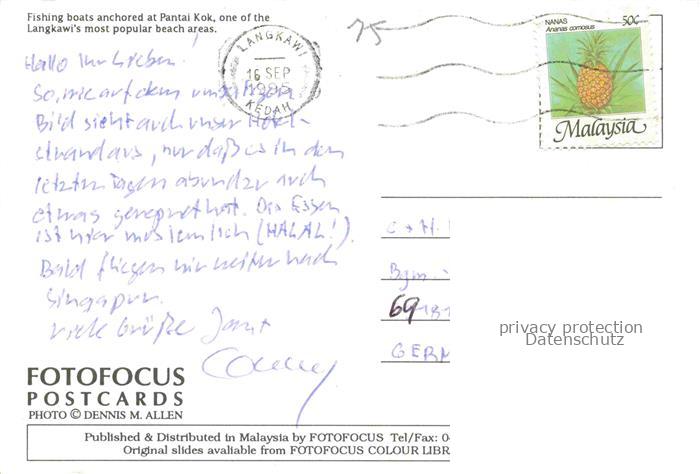 Fishing boats anchored at Pantai Kok, one of the
Langkawi's most popular beach areas.
75
LANGKAWI
16 SEP
1995
KEDAH
NANAS 50¢
Ananas comosus
Malaysia
Hallo Ihr Lieben!
So, wie auf dem umseitigen
Bild sieht auch unser Hotel-
strand aus, nur daß es in den
letzten Tagen ab und zu auch
etwas geregnet hat. Das Essen
ist hier moslemlich (HALAL!).
Bald fliegen wir weiter nach
Singapur.
Viele Grüße
C + H.
Bgm.
69
GERM
privacy protection
Datenschutz
FOTOFOCUS
POSTCARDS
PHOTO © DENNIS M. ALLEN
Published & Distributed in Malaysia by FOTOFOCUS Tel/Fax: 0
Original slides avaliable from FOTOFOCUS COLOUR LIBR